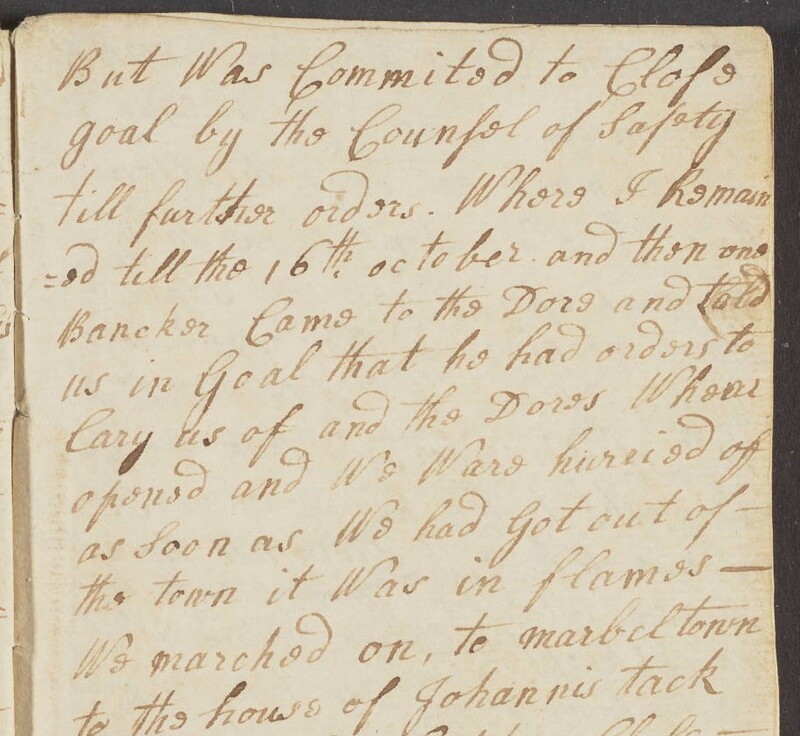 But Was Commited to Close
goal by the Counsel of Safety
till further orders. Where I Remain
=ed till the 16th. october. and then one
Bancker Came to the Dore and told
us in Goal that he had orders to
Cary us of and the Dores Whear
opened and We Ware hurried of
as Soon as We had Got out of -
the town it Was in flames —
We marched on, to marbeltown
to the house of Johannis tack